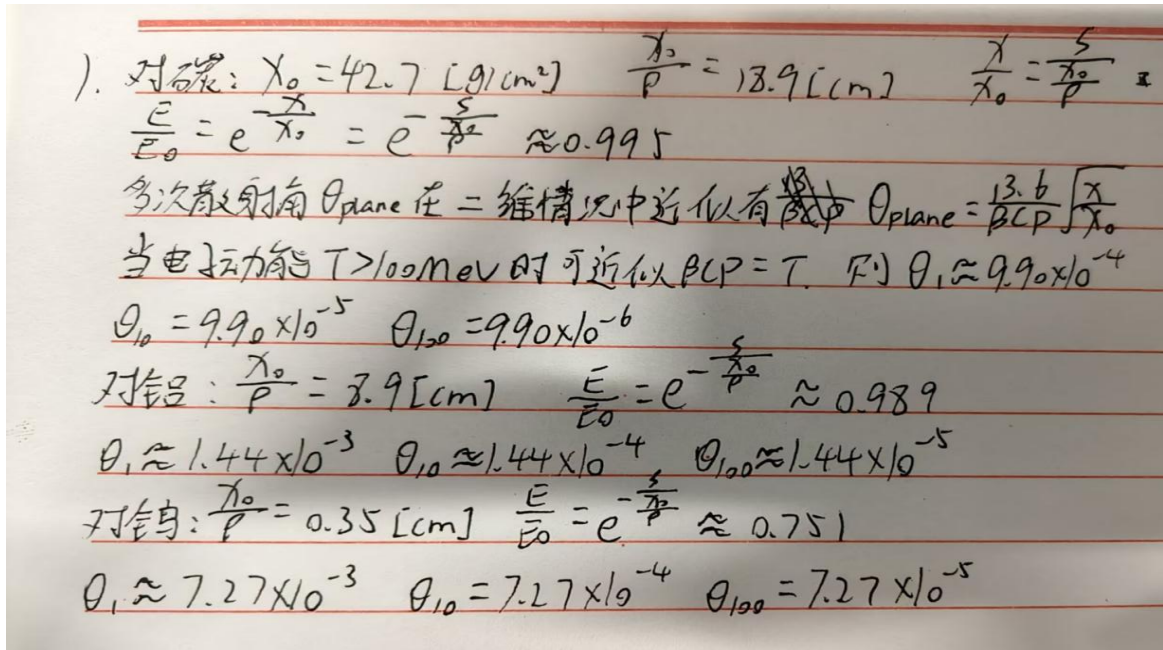 1. 对碳: X₀ = 42.7 [g/cm²] X₀/ρ = 18.9 [cm] X/X₀ = S/(X₀/ρ)
E/E₀ = e^(-X/X₀) = e^(-S/(X₀/ρ)) ≈ 0.995
多次散射角 θplane 在二维情况中近似有 θplane = 13.6/βCP √(X/X₀)
当电子动能 T>100MeV 时可近似 βCP = T. 则 θ₁ ≈ 9.90×10⁻⁴
θ₁₀ = 9.90×10⁻⁵ θ₁₀₀ = 9.90×10⁻⁶
对铝: X₀/ρ = 8.9 [cm] E/E₀ = e^(-S/(X₀/ρ)) ≈ 0.989
θ₁ ≈ 1.44×10⁻³ θ₁₀ ≈ 1.44×10⁻⁴ θ₁₀₀ ≈ 1.44×10⁻⁵
对钨: X₀/ρ = 0.35 [cm] E/E₀ = e^(-S/(X₀/ρ)) ≈ 0.751
θ₁ ≈ 7.27×10⁻³ θ₁₀ = 7.27×10⁻⁴ θ₁₀₀ = 7.27×10⁻⁵